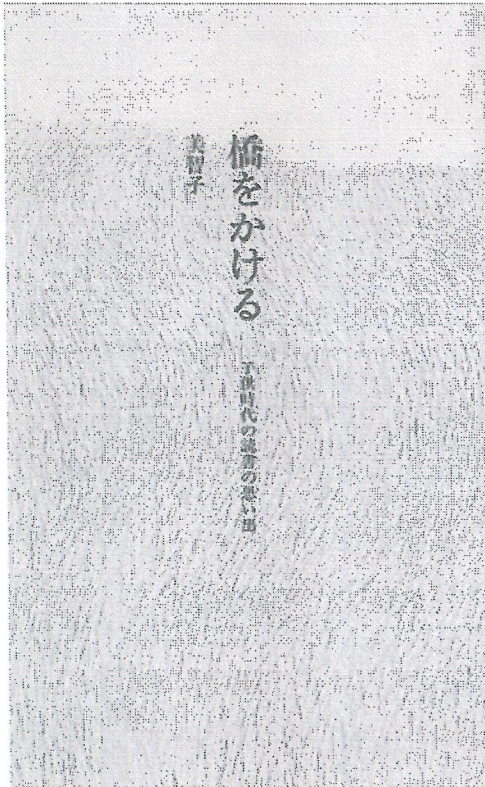 橋をかける
子供時代の読書の思い出
美智子